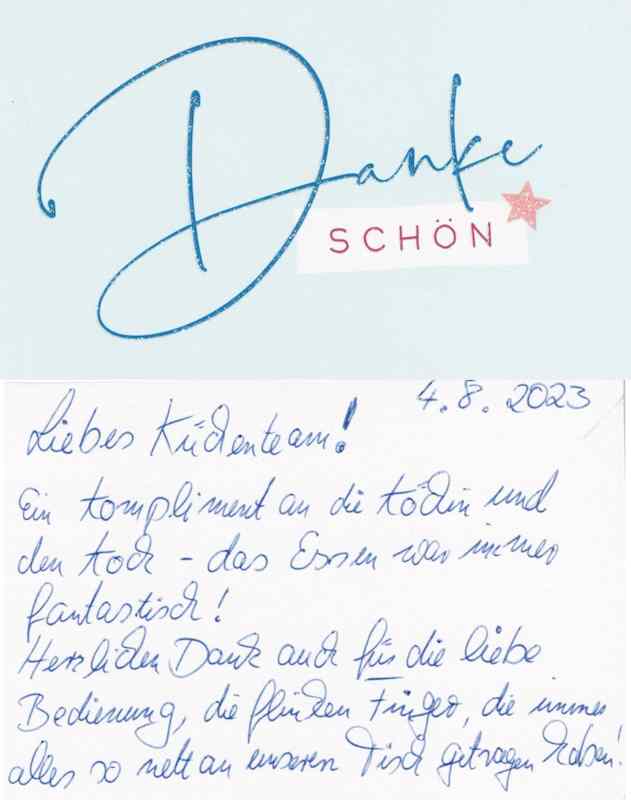 Danke
SCHÖN
4.8.2023
Liebes Küchenteam!
Ein Kompliment an die Köchin und
den Koch - das Essen war immer
fantastisch!
Herzlichen Dank auch für die liebe
Bedienung, die flinken Finger, die immer
alles so nett an unseren Tisch getragen haben!